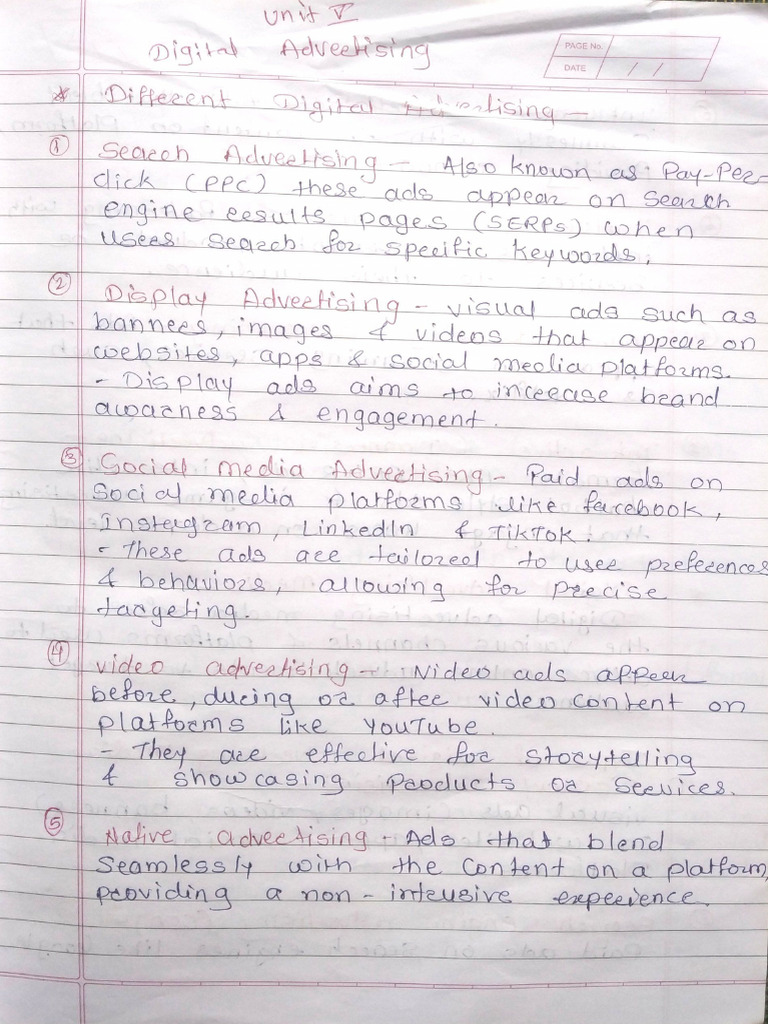 Unit V
Digital Advertising
PAGE No.
DATE / /
* Different Digital Advertising -
① Search Advertising - Also known as Pay-Per-
click (PPC) these ads appear on search
engine results pages (SERPs) when
users search for specific keywords.
② Display Advertising - visual ads such as
banners, images & videos that appear on
websites, apps & social media platforms.
- Display ads aims to increase brand
awarness & engagement.
③ Social media Advertising - Paid ads on
social media platforms like facebook,
Instagram, LinkedIn & TikTok.
- These ads are tailored to user preferences
& behaviors, allowing for precise
targeting.
④ Video advertising - Video ads appear
before, during or after video content on
platforms like YouTube.
- They are effective for storytelling
& showcasing products or services.
⑤ Native advertising - Ads that blend
seamlessly with the content on a platform,
providing a non-intrusive experience.